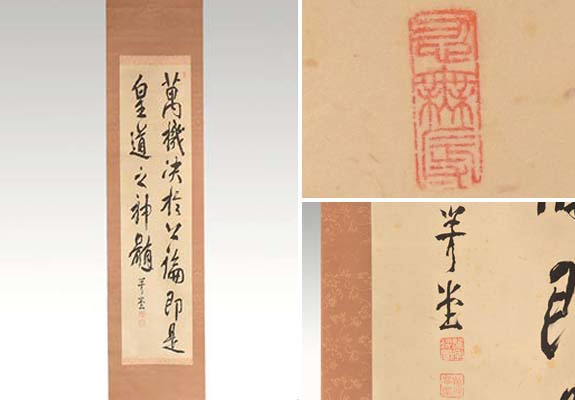 萬機決於公論即是
皇道之神髄
咢堂
咢堂